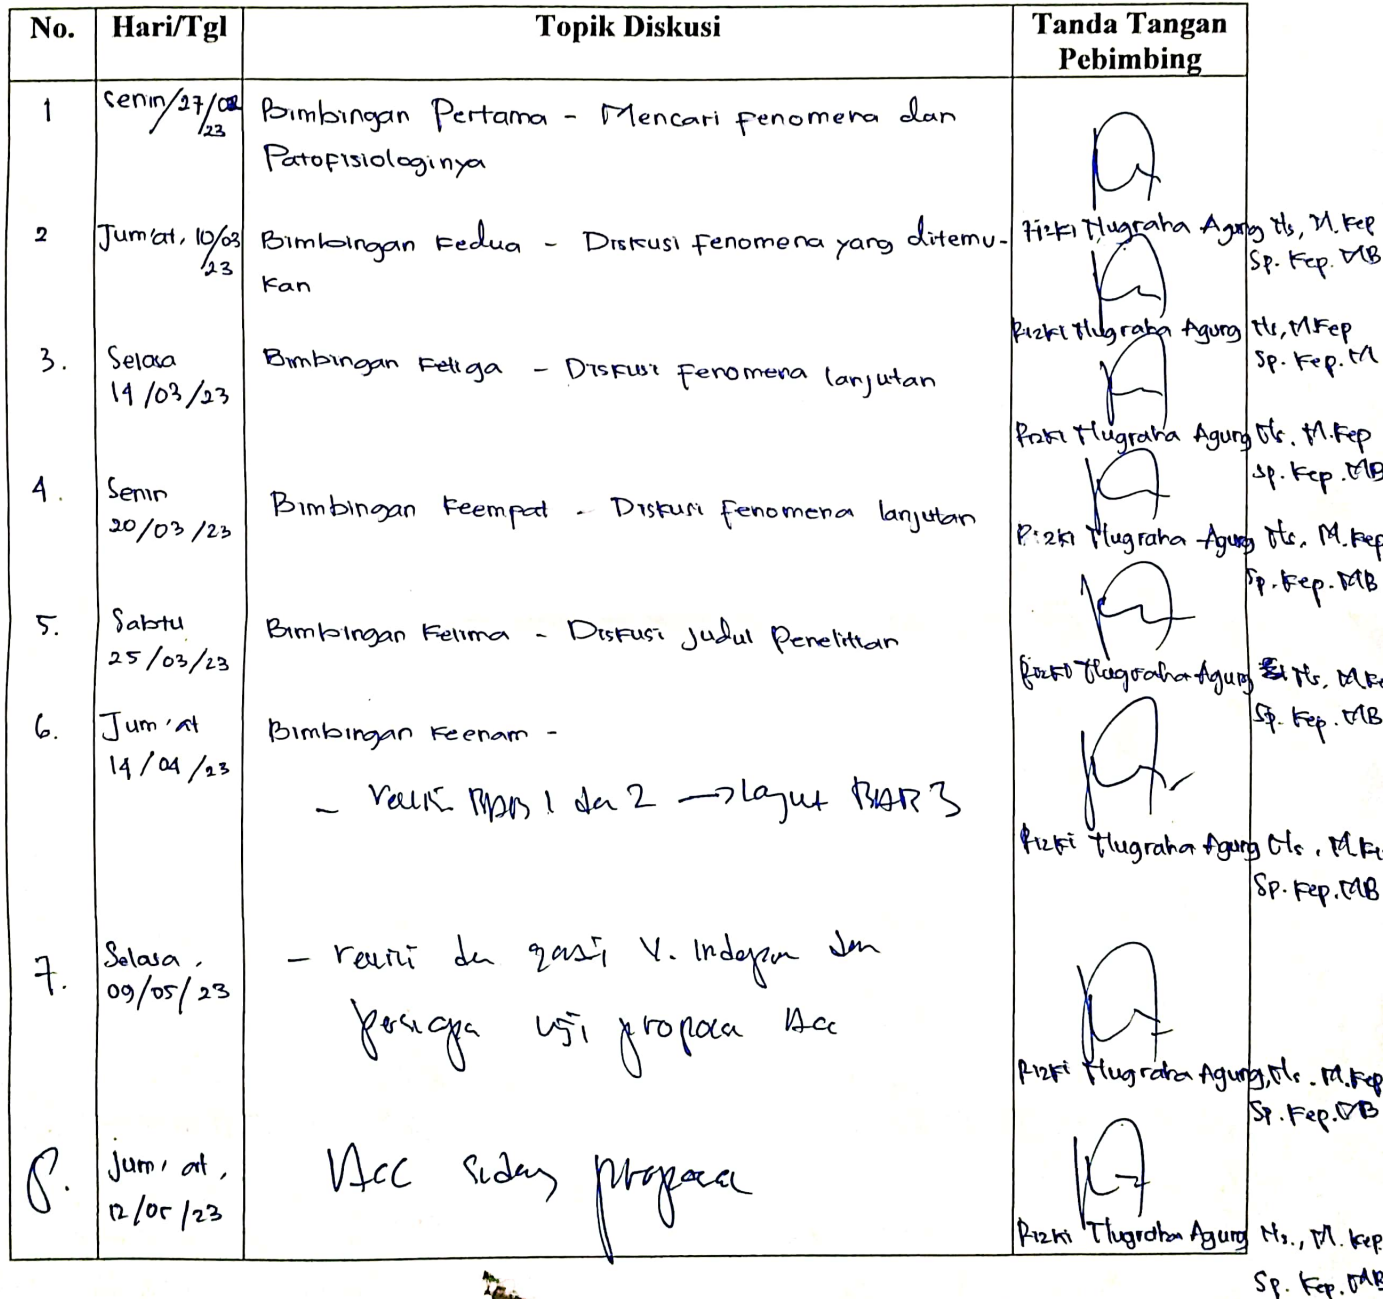 No. Hari/Tgl Topik Diskusi Tanda Tangan
Pebimbing
1 Senin/27/02/23 Bimbingan Pertama - Mencari fenomena dan
Patofisiologinya
2 Jum'at, 10/03/23 Bimbingan Kedua - Diskusi fenomena yang ditemu-
kan
Rizki Nugraha Agung Ns, M.Kep
Sp. Kep. MB
3. Selasa
14/03/23
Bimbingan Ketiga - Diskusi fenomena lanjutan
Rizki Nugraha Agung Ns, M.Kep
Sp. Kep. M
4. Senin
20/03/23
Bimbingan Keempat - Diskusi fenomena lanjutan
Rizki Nugraha Agung Ns. M.Kep
Sp. Kep. MB
Rizki Nugraha Agung Ns. M.Kep
Sp. Kep. MB
5. Sabtu
25/03/23
Bimbingan Kelima - Diskusi judul Penelitian
Rizki Nugraha Agung Ns, M.Ke
Sp. Kep. MB
6. Jum'at
14/04/23
Bimbingan Keenam -
- BAB 1 dan 2 → BAB 3
Rizki Nugraha Agung Ns, M.Ke
Sp. Kep. MB
7. Selasa,
09/05/23
- V. Indepen dan
uji Acc
Rizki Nugraha Agung, Ns. M.Kep
Sp. Kep. MB
8. Jum'at,
12/05/23
Acc sidang
Rizki Nugraha Agung Ns., M.Kep
Sp. Kep. MB